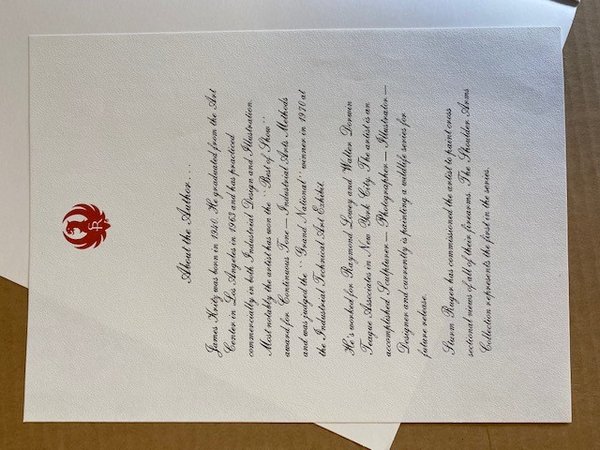 About the Author....
James Kritz was born in 1940. He graduated from the Art
Center in Los Angeles in 1963 and has practiced
commercially in both Industrial Design and Illustration.
Most notably the artist has won the "Best of Show"
award for Continuous Tone — Industrial Arts Methods
and was judged the "Grand National" winner in 1970 at
the Industrial Technical Art Exhibit.
He's worked for Raymond Lowey and Walter Dorwin
Teague Associates in New York City. The artist is an
accomplished Sculpturer — Photographer — Illustrator —
Designer and currently is painting a wildlife series for
future release.
Sturm Ruger has commissioned the artist to paint cross
sectional views of all of their firearms. The Shoulder Arms
Collection represents the first in the series.